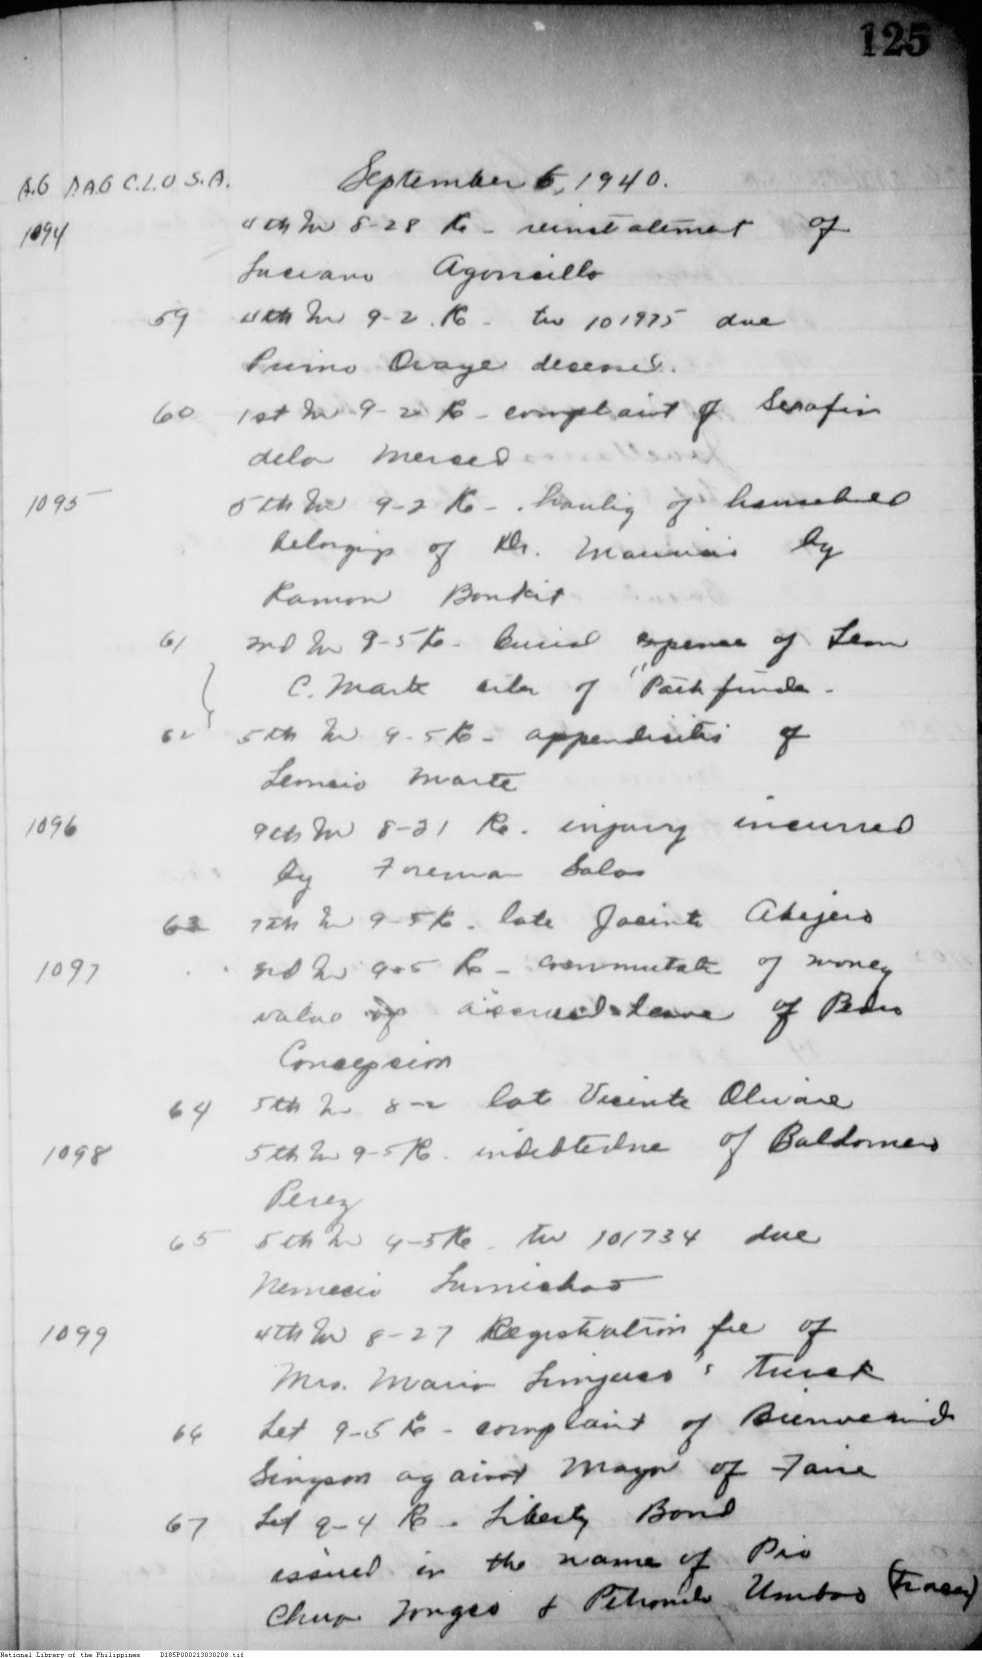 125
A.G D.A.G C.L.O S.A. September 6, 1940.
1094 4th In 8-28 Re - reinstatement of
Luciano Agoncillo
59 4th In 9-2 Re - tw 101975 due
Primo Oraye deceased.
60 1st In 9-2 Re - complaint of Serafin
dela Merced
1095 5th In 9-2 Re - hauling of household
belongings of Dr. by
Ramon Bonkit
61 2nd In 9-5 Re - burial expense of Leon
C. Marte of "Pathfinder
62 5th In 9-5 Re - appendicitis of
Leoncio Marte
1096 9th In 8-21 Re. injury incurred
by Foreman Salas
63 7th In 9-5 Re. late Jacinto Abejero
1097 2nd In 9-5 Re - commutate of money
value of accrued leave of Pedro
Concepcion
64 5th In 8-2 late Vicente Olivare
1098 5th In 9-5 Re. indebtedne of Baldomero
Perez
65 5th In 9-5 Re. tw 101734 due
Nemesio
1099 4th In 8-27 Registration fee of
Mrs. Maria Limjuco's truck
66 Let 9-5 Re - complaint of Bienvenid
Singson against Mayor of
67 Let 9-4 Re - Liberty Bond
issued in the name of Pio
Chua & Umbao
National Library of the Philippines D185P000213030208.tif